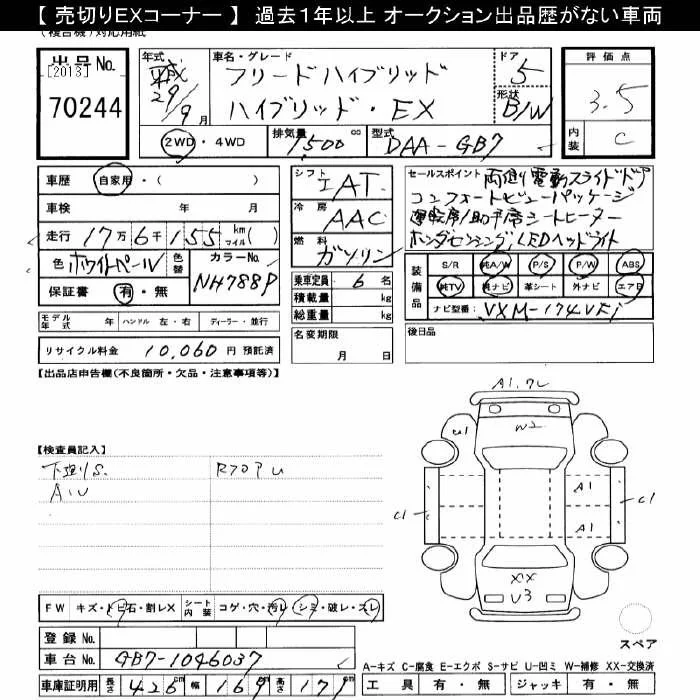 【 売切りEXコーナー 】 過去1年以上 オークション出品歴がない車両
(複合機)対応用紙
出品No.
[2013]
70244
年式 平成 29年 9月
車名・グレード
フリードハイブリッド
ハイブリッド・EX
ドア 5
形状 B/W
2WD ・ 4WD
排気量 1,500 cc
型式 DAA-GB7
評価点
3.5
内装 C
車歴 自家用・( )
車検 年 月
走行 17万6千155 km マイル( )
色 ホワイトパール 色替 カラーNo. NH788P
保証書 有・無
シフト エ AT
冷房 AAC
燃料 ガソリン
乗車定員 6 名
積載量 kg
総重量 kg
セールスポイント 両側電動スライドドア
コンフォートビューパッケージ
運転席/助手席シートヒーター
ホンダセンシング,LEDヘッドライト
装備品
S/R 純A/W P/S P/W ABS
純TV 純ナビ 革シート 外ナビ エアB
ナビ型番: VXM-174VFi
モデル年式 年 ハンドル 左・右 ディーラー・並行
名変期限
月 日
後日品
リサイクル料金 10,060 円 預託済
【出品店申告欄(不良箇所・欠品・注意事項等)】
A1.
W2
U1
A1
A1
C1
C1
XX
U3
スペア
【検査員記入】
下廻りS.
A・U
FW キズ・トビ石・割レX シート内装 コゲ・穴・汚レ シミ・破レ・スレ
登録 No.
車台 No. GB7-1046037
車庫証明用 長さ 426 cm 幅 169 cm 高さ 171 cm
A-キズ C-腐食 E-エクボ S-サビ U-凹ミ W-補修 XX-交換済
工具 有・無 ジャッキ 有・無